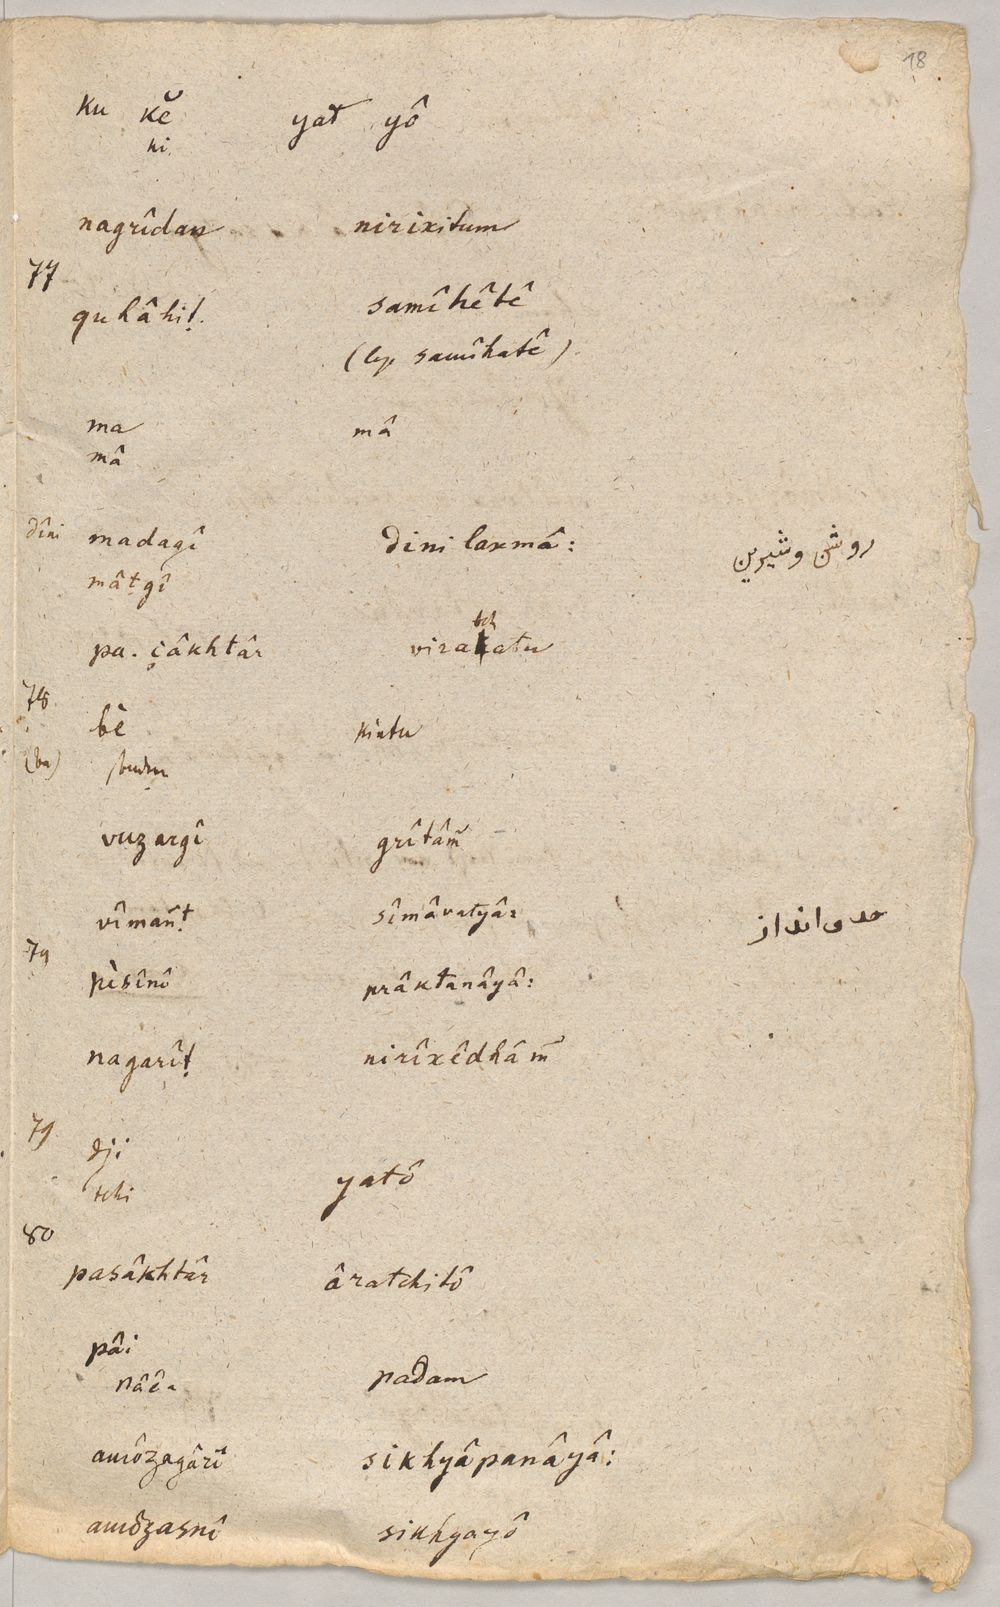 18
ku kĕ yat yô
ni
nagrîdan nirixitum
77
quhâhiṭ. samîhêtê
(lep. samîhatê)
ma mâ
mâ
dîni madagî dini laxmâ: روشن وشیرین
mâṭgî
tch
pa. çâkhtâr virakatu
78
bê kintu
(ba)
vuzargî grîtâm̃
vîmañṭ sîmâvatyâ: حد و انداز
79
pèsînô prâktanâyâ:
nagarîṭ nirîxêdhâm̃
79
dji
tchi yatô
80
pasâkhtâr âratchitô
pâi
nâê. padam
amôzagârî sikhyâpanâyâ:
amôzasnî sikhyayô